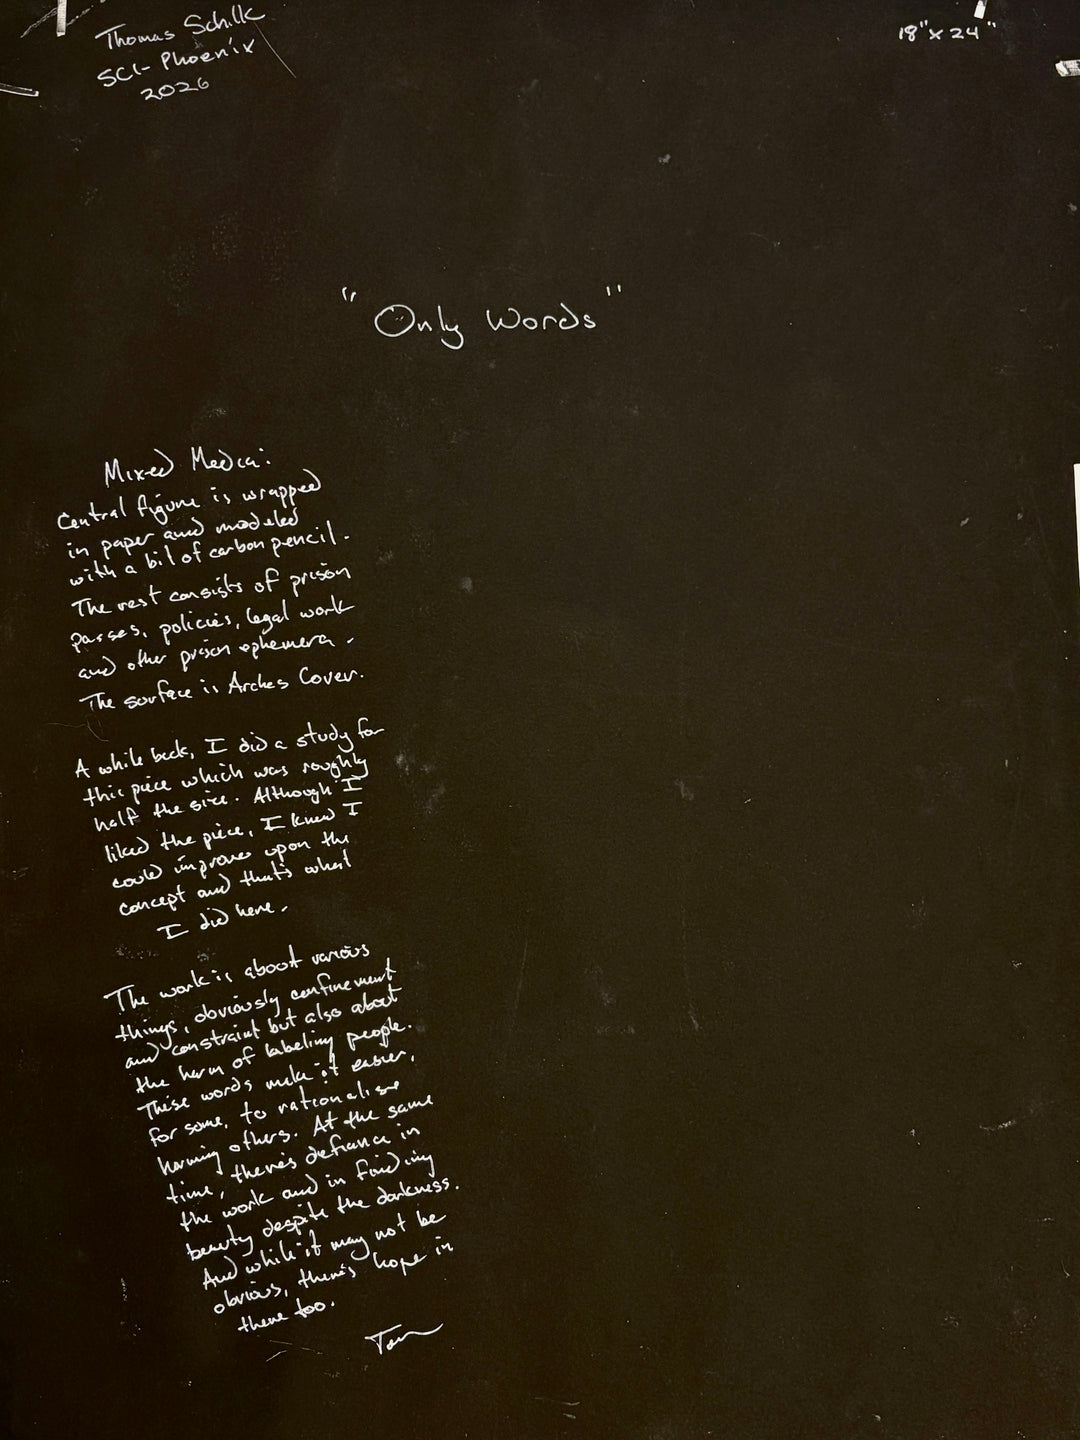 Thomas Schilk
SCI-Phoenix
2026
18" x 24"
"Only Words"
Mixed Media:
Central figure is wrapped
in paper and modeled
with a bit of carbon pencil.
The rest consists of prison
passes, policies, legal work
and other prison ephemera.
The surface is Arches Cover.
A while back, I did a study for
this piece which was roughly
half the size. Although I
liked the piece, I knew I
could improve upon the
concept and that's what
I did here.
The work is about various
things, obviously confinement
and constraint but also about
the harm of labeling people.
These words make it easier,
for some, to rationalise
harming others. At the same
time, there's defiance in
the work and in finding
beauty despite the darkness.
And while it may not be
obvious, there's hope in
there too.
Tom